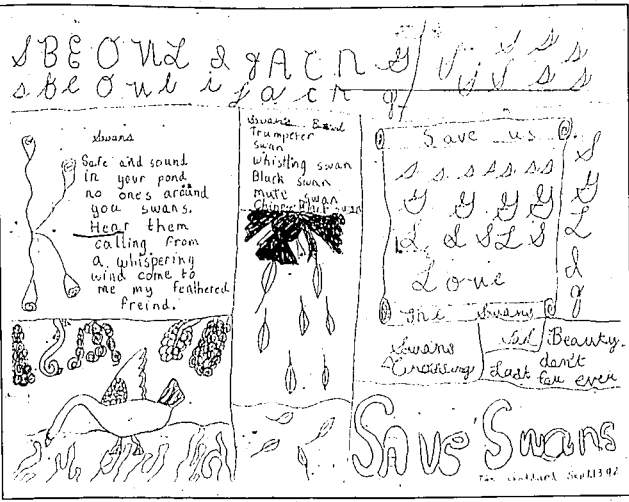 S B E O U L I g A C N G
s b e o u l i j a c r g
Y U Y S S
U S S S
Swans
Safe and sound
in your pond
no ones around
you swans.
Hear them
calling from
a whispering
wind come to
me my feathered
freind.
Swans
Trumpeter
swan
whistling swan
Black swan
mute swan
swan
Save us
s s s s s s
y y y y
L L S L S
Love
The Swans
S
Y
L
d
g
Swans
Crossing
Beauty
don't
Last for ever
SAVE Swans
Sept.13 92